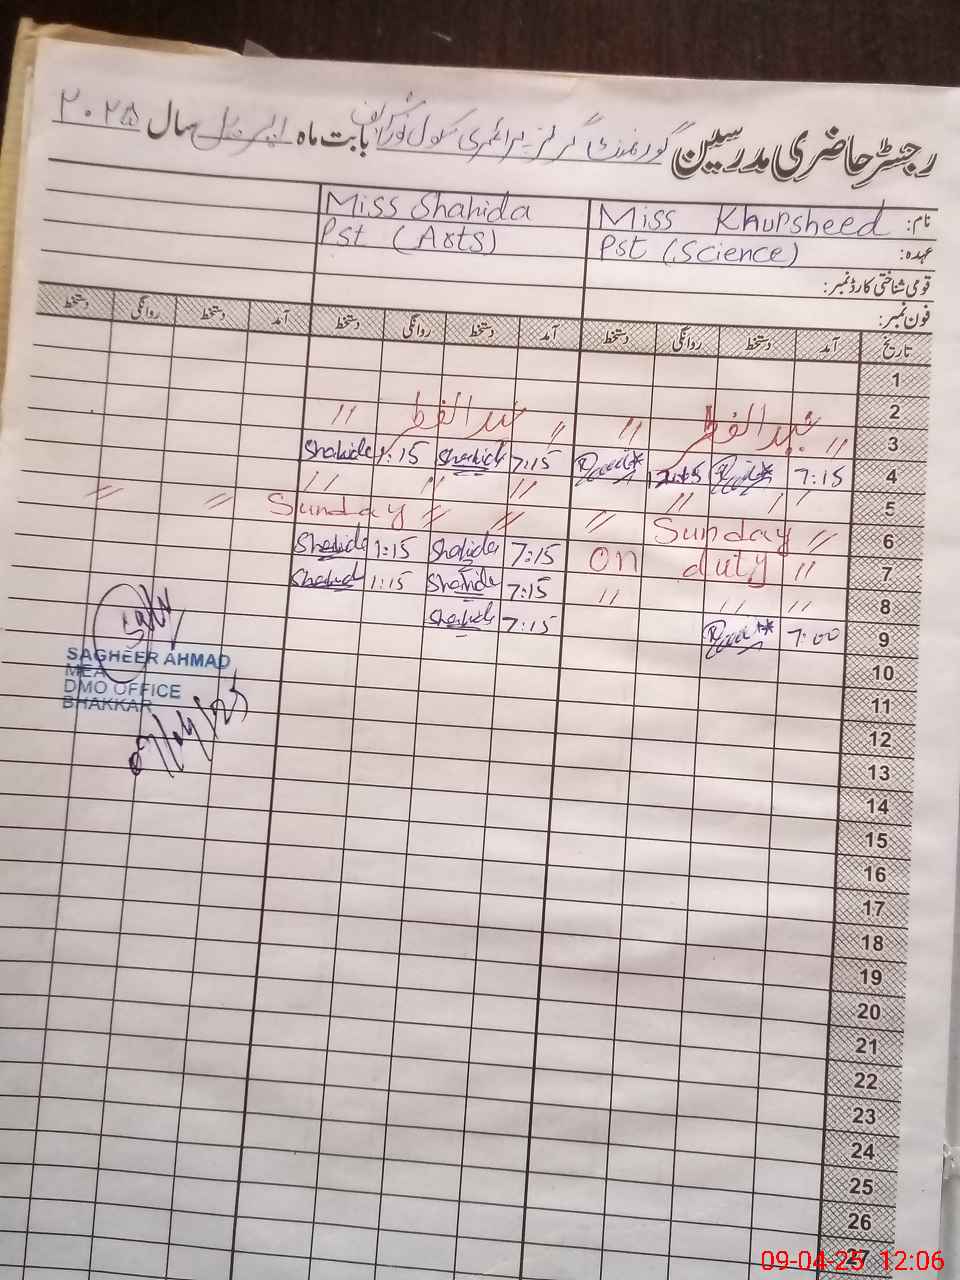 رجسٹر حاضری مدرسین گورنمنٹ گرلز پرائمری سکول بابت ماہ اپریل سال ۲۰۲۵
نام: Miss Khursheed Miss Shahida
عہدہ: Pst (Science) Pst (Arts)
قومی شناختی کارڈ نمبر:
فون نمبر:
تاریخ آمد دستخط روانگی دستخط آمد دستخط روانگی دستخط آمد دستخط روانگی دستخط
1
2
3 عید الفطر " " عید الفطر "
4 7:15 7:15 Shahida 1:15 Shahida
5 " " " " "
6 " Sunday " " " Sunday " "
7 " duty on 7:15 Shahida 1:15 Shahida
8 " " " 7:15 Shahida 1:15 Shahid
9 7:00 7:15 Shahida
10
11
12
13
14
15
16
17
18
19
20
21
22
23
24
25
26
27
SAGHEER AHMAD
MEA
DMO OFFICE
BHAKKAR
09-04-25 12:06